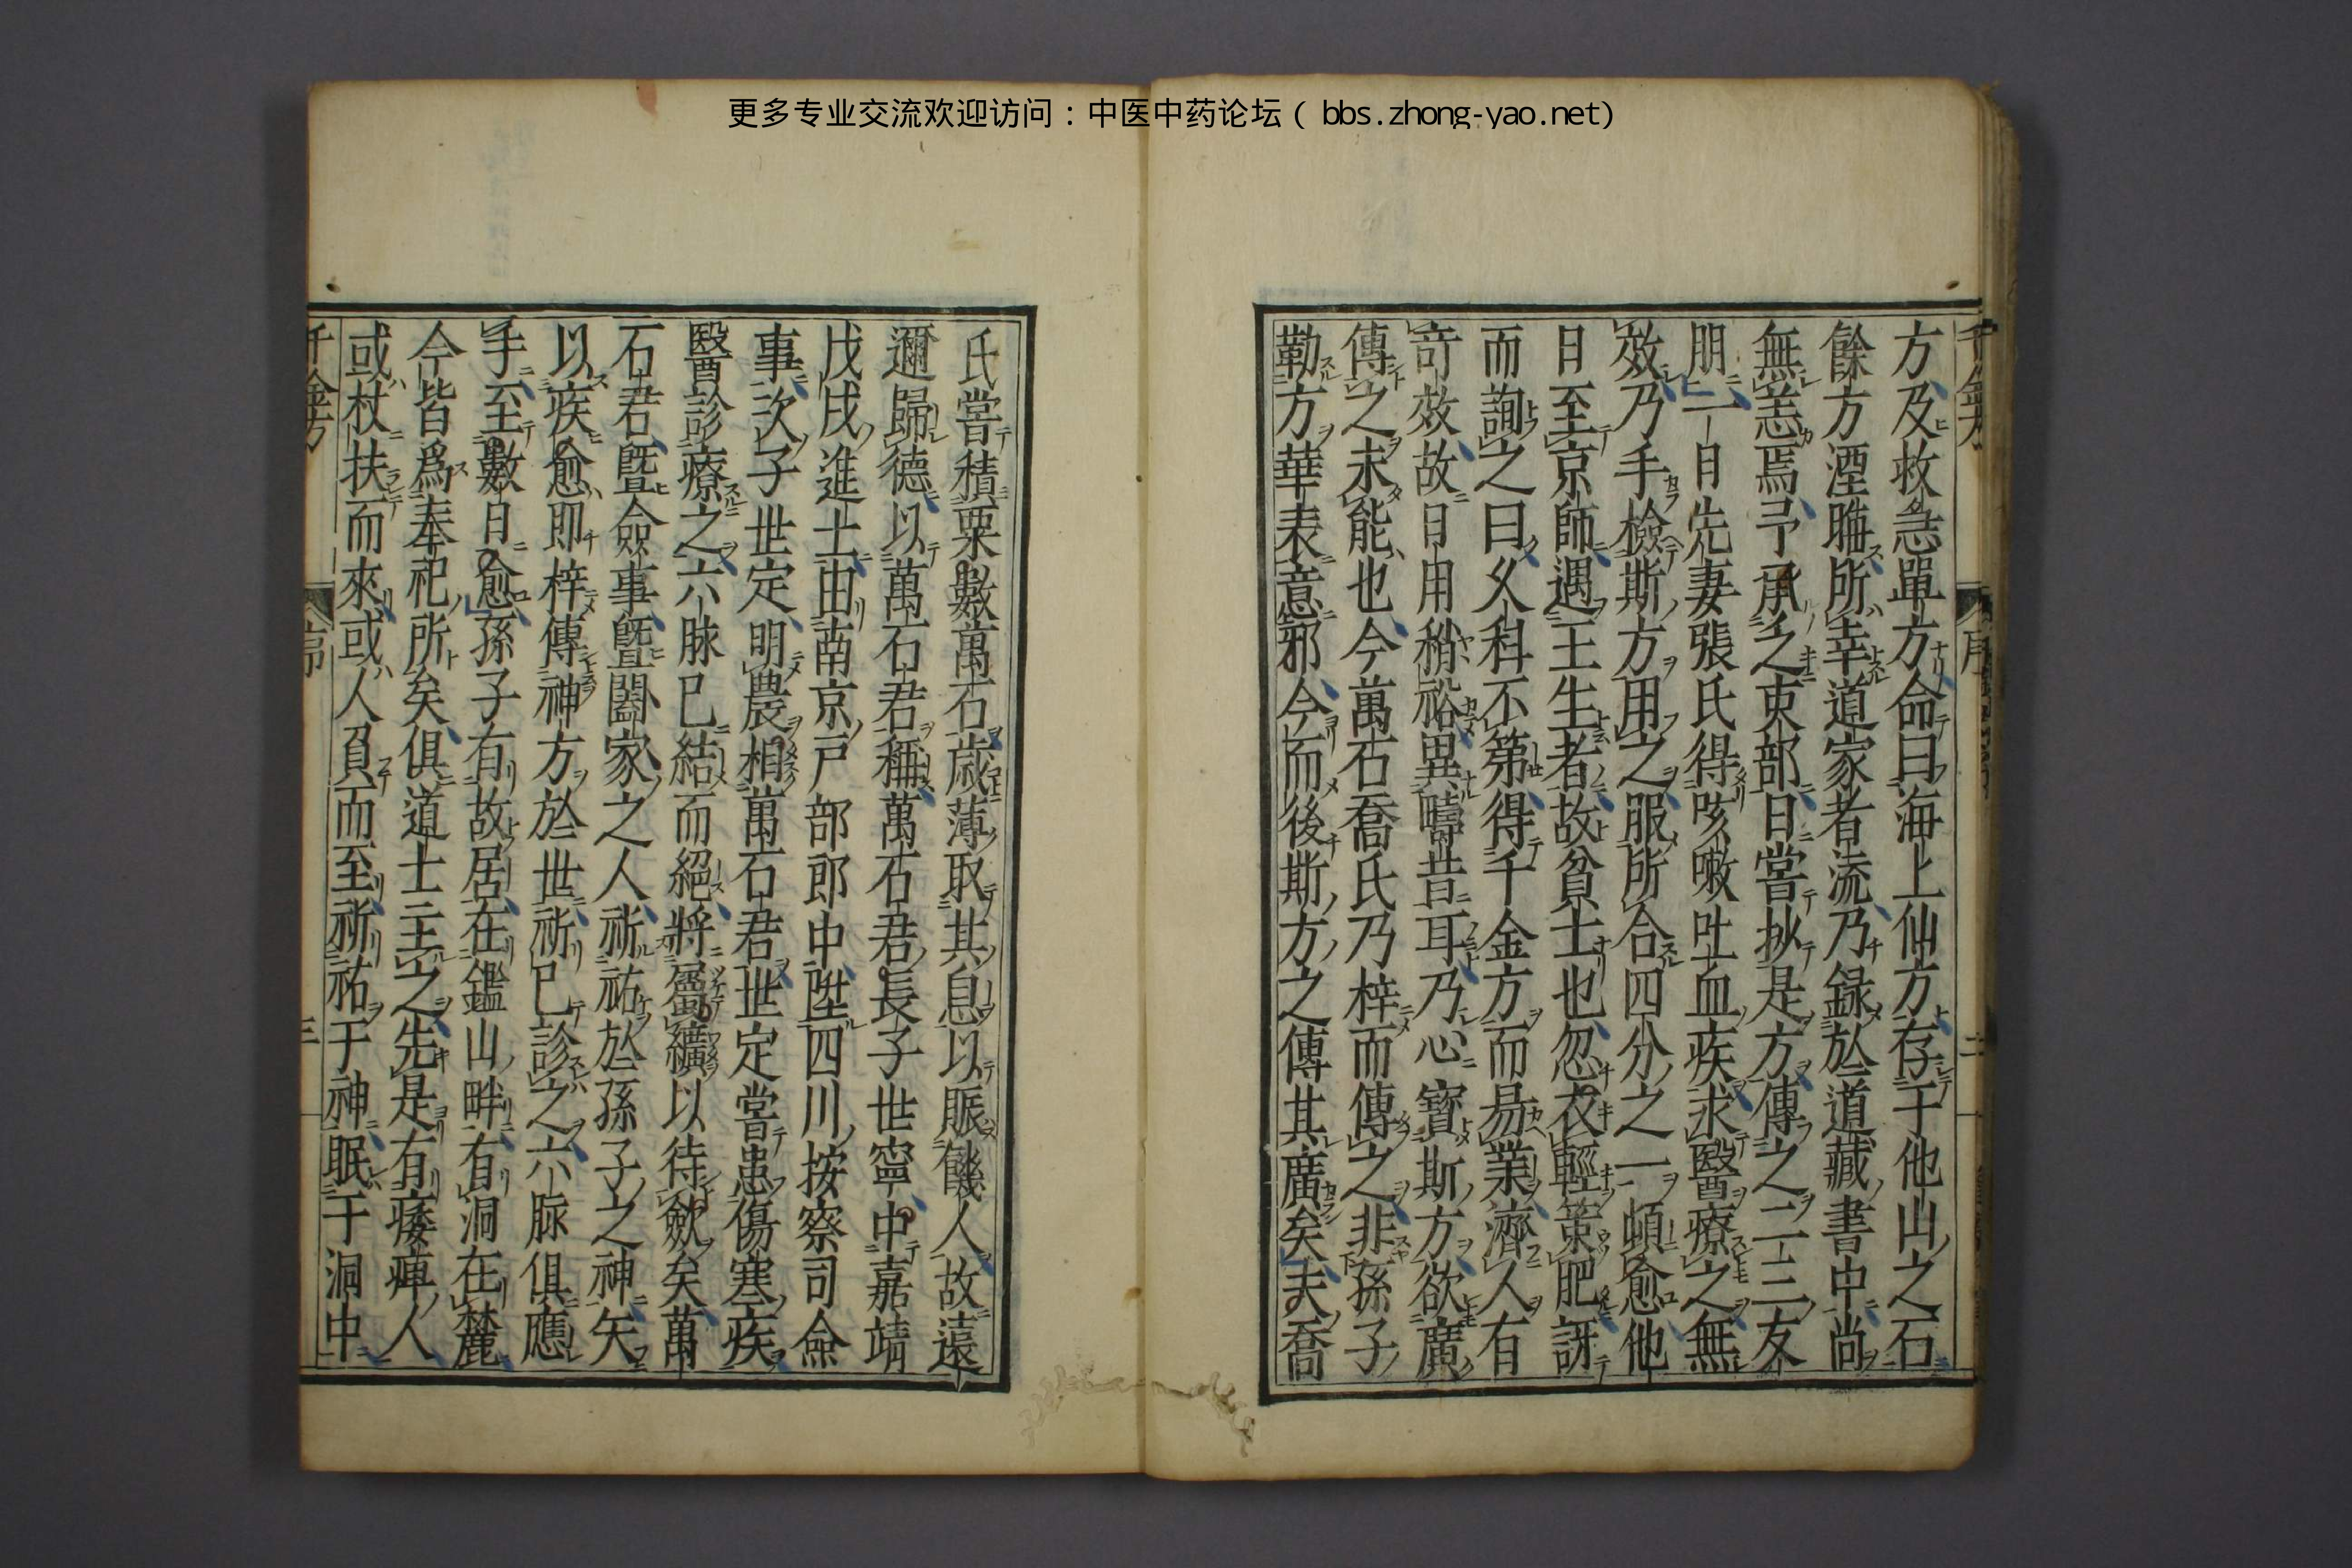 更多专业交流欢迎访问：中医中药论坛（bbs.zhong-yao.net）
方及救急單方命曰海上仙方存于他山之石
餘方湮晦所幸道家者流乃録於道藏書中尚
無恙焉予承乏吏部日嘗抄是方傳之二三友
朋一日先妻張氏得咳嗽吐血疾求醫療之無
效乃手檢斯方用之服所合四分之一頓愈他
日至京師遇王生者故貧士也忽衣輕策肥訝
而詢之曰久科不第得千金方而易業濟人有
奇效故日用稍裕異疇昔耳乃心寶斯方欲廣
傳之未能也今萬石喬氏乃梓而傳之非孫子
勒方華表意邪今而後斯方之傳其廣矣夫喬
氏嘗積粟數萬石歲薄取其息以賑饑人故遠
邇歸德以萬石君稱萬石君長子世寧中嘉靖
戊戌進士由南京戶部郎中陞四川按察司僉
事次子世定明農相萬石君世定嘗患傷寒疾
醫診療之六脉已結而絕將屬纊以待斂矣萬
石君暨僉事暨闔家之人祈祐於孫子之神矢
以疾愈即梓傳神方於世祈已診之六脈俱應
手至數日愈孫子有故居在鑑山畔有洞在麓
今皆爲奉祀所矣俱道士主之先是有痿痺人
或杖扶而來或人負而至祈祐于神眠于洞中
千金方
序
三